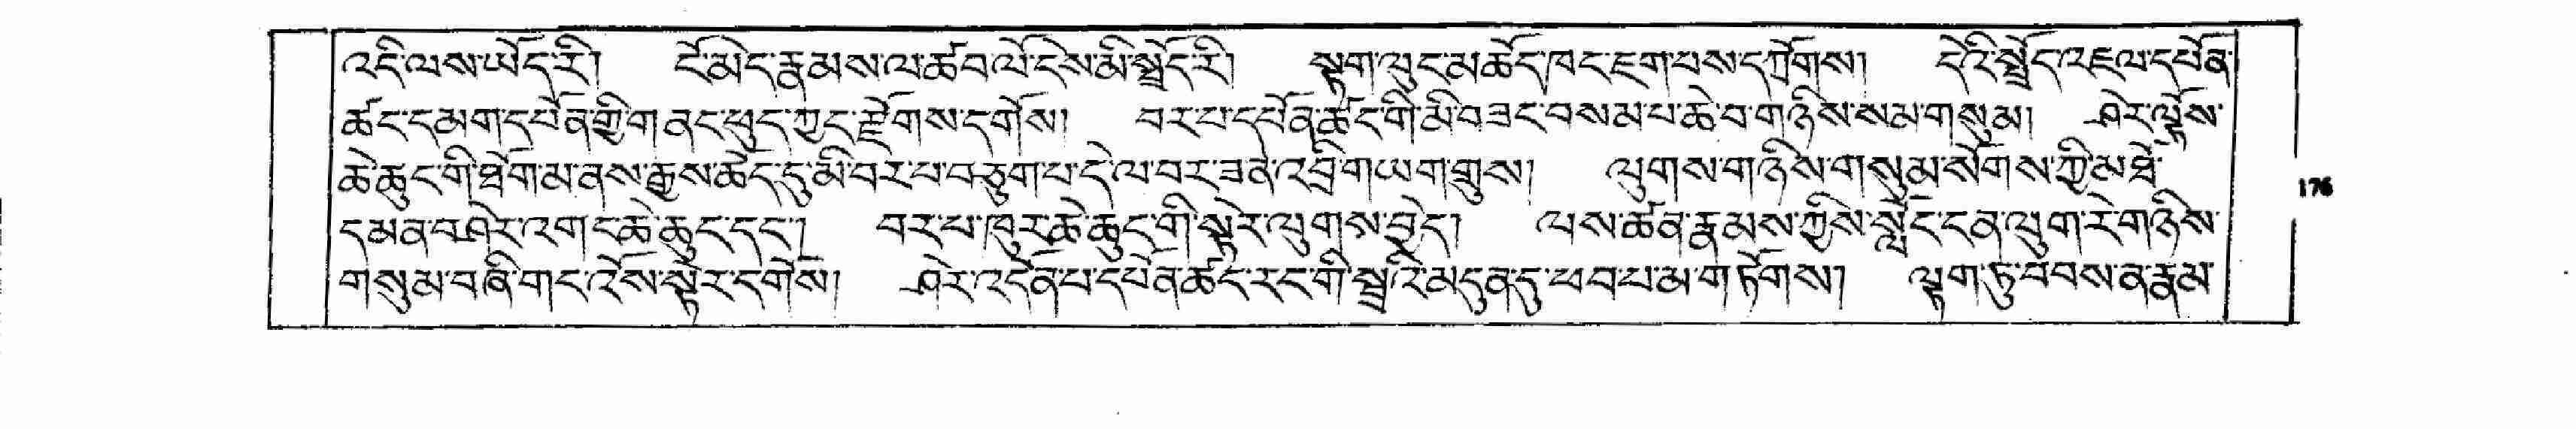 འདི་ལས་ཡོད་རི། ངོ་མེད་རྣམས་ལ་ཚབ་ལེ་ངེས་མི་སྤྲོད་རི། སྟག་ལུང་མཆོད་ཁང་ཇག་པས་དཀྲོགས། དེའི་སྤྲོད་འཇལ་དཔོན་
ཚང་དམག་དཔོན་གྱི་གནང་ཕུད་ཀྱང་རྫོགས་དགོས། བར་པ་དཔོན་ཚང་གི་མི་བཟང་བསམ་པ་ཆེ་བ་གཉིས་སམ་གསུམ། ཤེར་ལྟོས་
ཆེ་ཆུང་གི་ཐོག་མ་ནས་རྒྱས་ཚོད་དུ་མི་བར་པ་བཅུག་པ་དེ་ལ་བར་ཟན་འབྲི་གཡག་གྲུས། ལུགས་གཉིས་གསུམ་སོགས་ཀྱི་མཐོ་
དམན་བཤེར་འགངཆེ་ཆུང་དང་། བར་པ་ཁུར་ཆེ་ཆུང་གི་སྟེར་ལུགས་བྱེད། ལས་ཚན་རྣམས་ཀྱིས་སློང་ངན་ལུག་རེ་གཉིས་
གསུམ་བཞི་གང་འོས་སྟེར་དགོས། ཤེར་འདོན་པ་དཔོན་ཚང་རང་གི་སྦྲའི་མདུན་དུ་ཕབ་པ་མ་གཏོགས། ལྟག་ཏུ་བབས་ན་རྣམ་
176